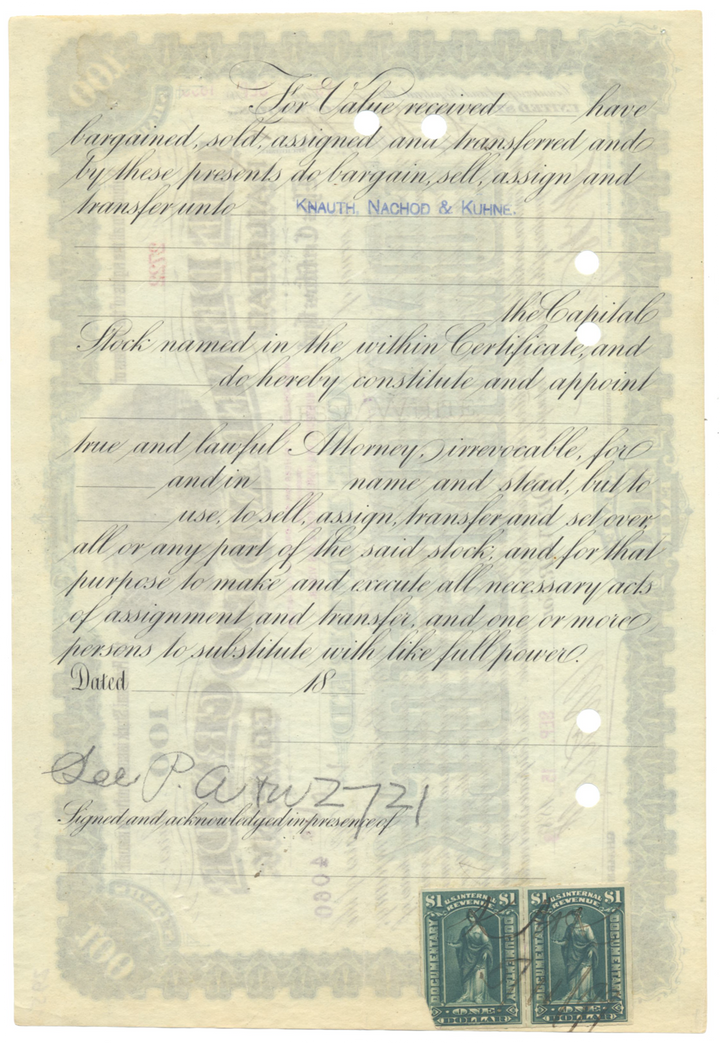 For Value received have
bargained, sold, assigned and transferred and
by these presents do bargain, sell, assign and
transfer unto KNAUTH, NACHOD & KUHNE.
the Capital
Stock named in the within Certificate, and
do hereby constitute and appoint
true and lawful Attorney, irrevocable, for
and in name and stead, but to
use, to sell, assign, transfer and set over,
all or any part of the said stock; and for that
purpose to make and execute all necessary acts
of assignment and transfer, and one or more
persons to substitute with like full power.
Dated 18
See P.
Signed and acknowledged in presence of
4060
$1 U.S. INTERNAL REVENUE $1
DOCUMENTARY DOCUMENTARY
ONE DOLLAR
$1 U.S. INTERNAL REVENUE $1
DOCUMENTARY DOCUMENTARY
ONE DOLLAR